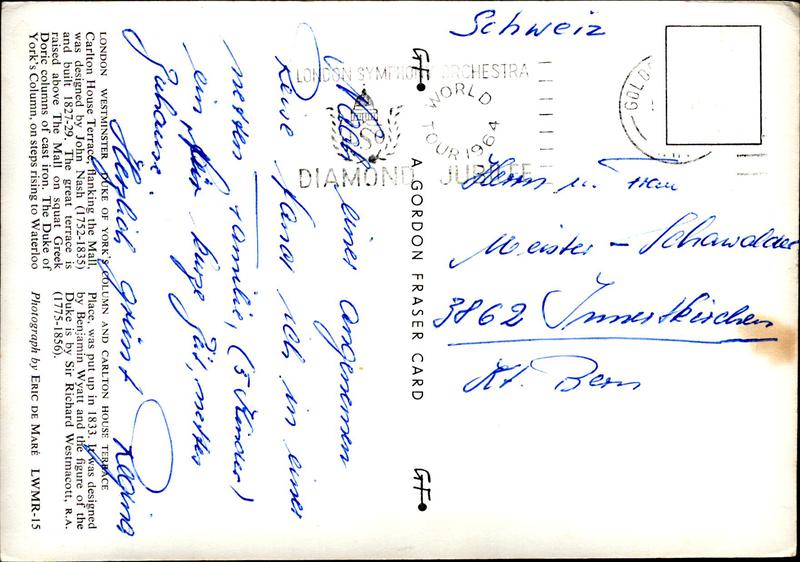 Schweiz
Herrn u. Frau
Meister - Schawalder
3862 Innertkirchen
Kt. Bern
Nach einer angenemen
Reise fand ich in einer
netten Familie, (5 Kinder)
ein für kurze Zeit, nettes
Zuhause.
Herzlich grüsst Regina
LONDON SYMPHONY ORCHESTRA
WORLD
TOUR 1964
DIAMOND JUBILEE
GF
A GORDON FRASER CARD
GF
LONDON WESTMINSTER DUKE OF YORK'S COLUMN AND CARLTON HOUSE TERRACE
Carlton House Terrace, flanking the Mall,
was designed by John Nash (1752-1835)
and built 1827-29. The great terrace is
raised above The Mall on squat Greek
Doric columns of cast iron. The Duke of
York's Column, on steps rising to Waterloo
Place, was put up in 1833. It was designed
by Benjamin Wyatt and the figure of the
Duke is by Sir Richard Westmacott, R.A.
(1775-1856).
Photograph by ERIC DE MARÉ LWMR-15